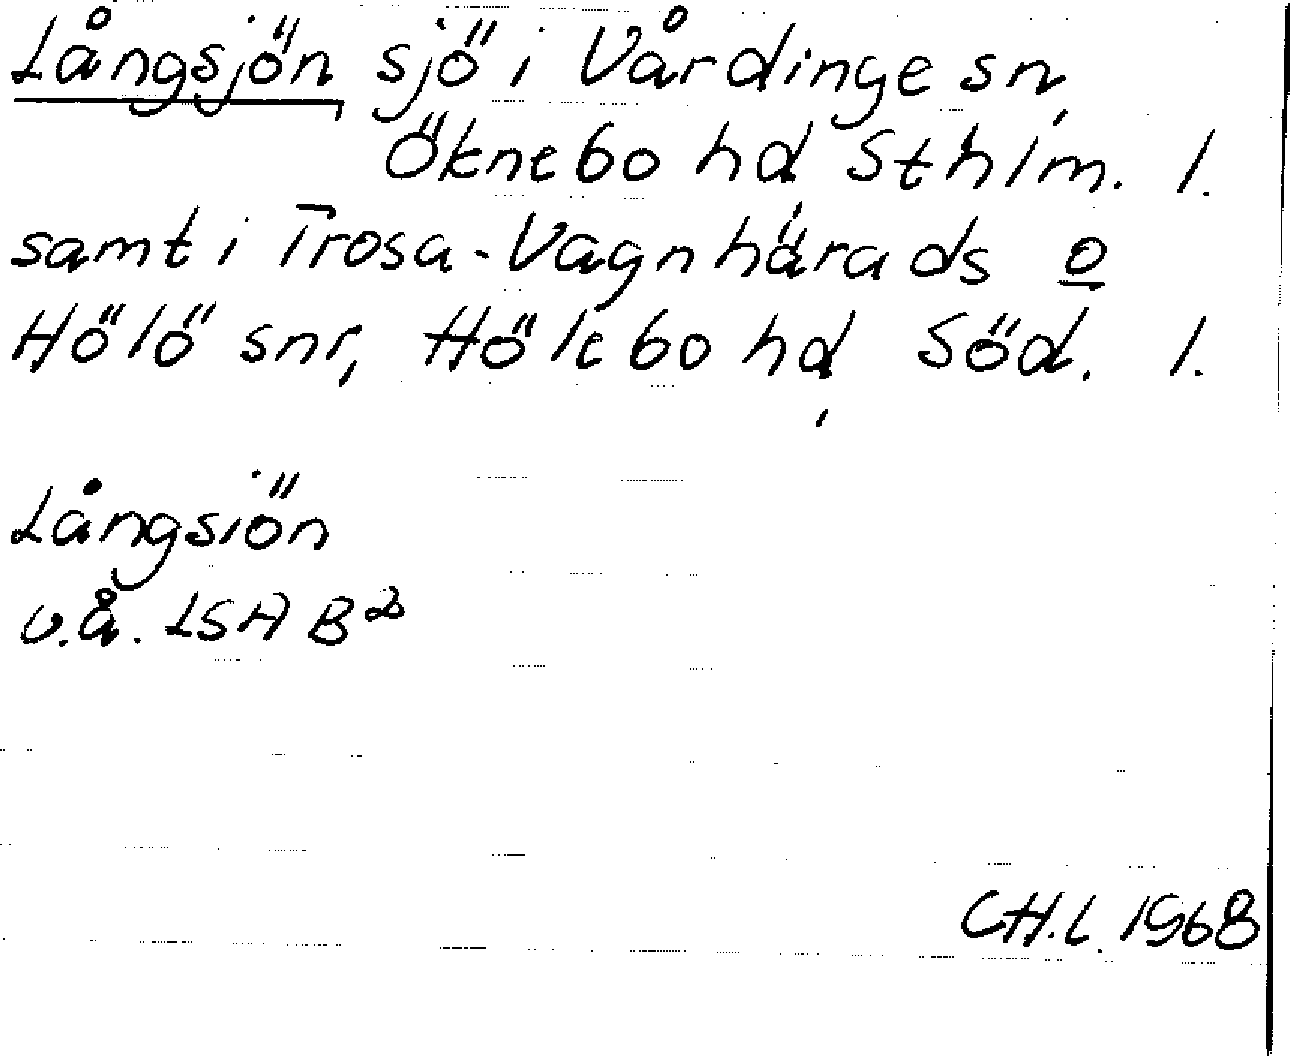 Långsjön sjö i Vårdinge sn,
Öknebo hd, Sthlm. l.
samt i Trosa-Vagnhärads o
Hölö snr, Hölebo hd, Söd. l.
Långsiön
u.å. LSA B2
CH.L. 1968